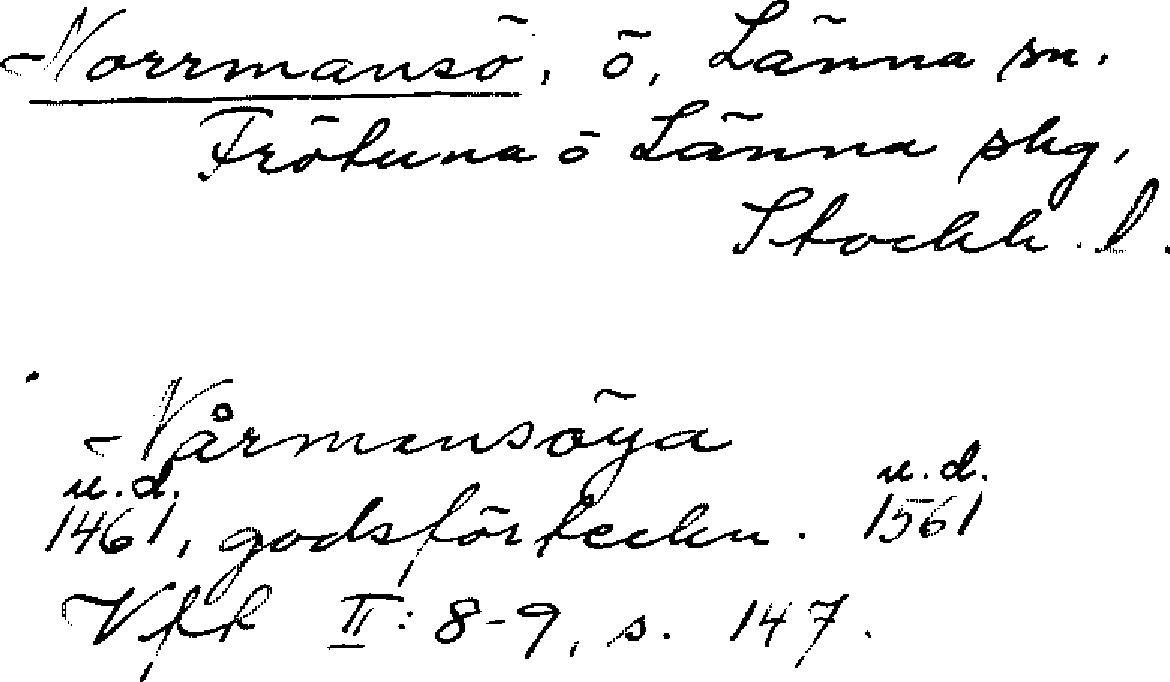 Norrmansö, ö, Länna sn.
Frötuna o Länna skg,
Stockh. l.
Nårmansöya
u.d. u.d.
1461, godsförteckn. 1561
Vfk II: 8-9, s. 147.